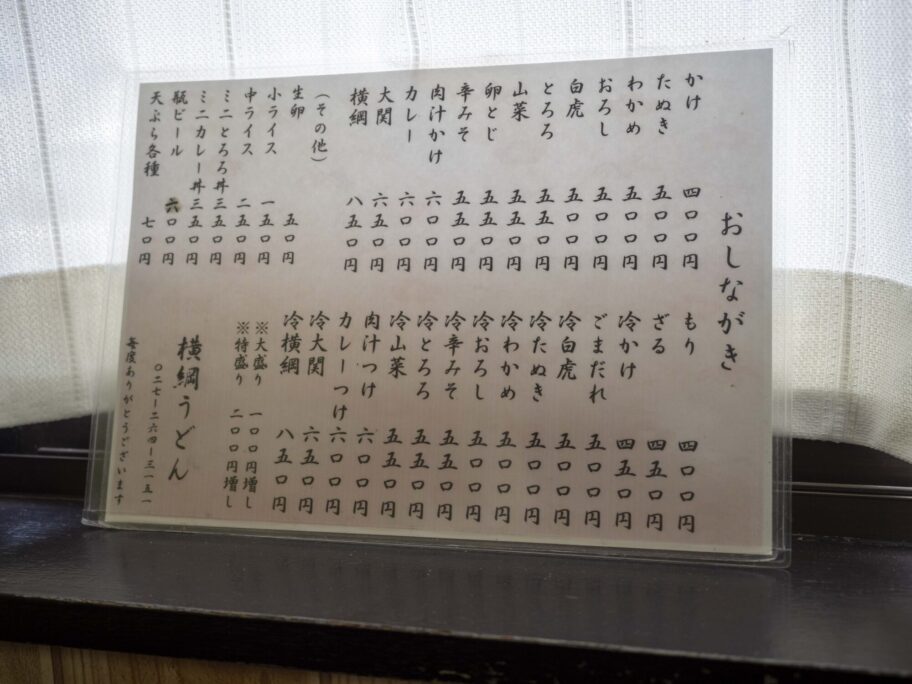 おしながき
かけ 四〇〇円
たぬき 五〇〇円
わかめ 五〇〇円
おろし 五〇〇円
白虎 五〇〇円
とろろ 五五〇円
山菜 五五〇円
卵とじ 五五〇円
辛みそ 五五〇円
肉汁かけ 六〇〇円
カレー 六〇〇円
大関 六五〇円
横綱 八五〇円
(その他)
生卵 五〇円
小ライス 一五〇円
中ライス 二五〇円
ミニとろろ丼 三五〇円
ミニカレー丼 三五〇円
瓶ビール 六〇〇円
天ぷら各種 七〇円
もり 四〇〇円
ざる 四五〇円
冷かけ 四五〇円
ごまだれ 五〇〇円
冷白虎 五五〇円
冷たぬき 五五〇円
冷わかめ 五五〇円
冷おろし 五〇〇円
冷辛みそ 五五〇円
冷とろろ 五五〇円
冷山菜 五五〇円
肉汁つけ 六〇〇円
カレーつけ 六〇〇円
冷大関 六五〇円
冷横綱 八五〇円
※大盛り 一〇〇円増し
※特盛り 二〇〇円増し
横綱うどん
〇二七ー二六四ー三一五一
毎度ありがとうございます